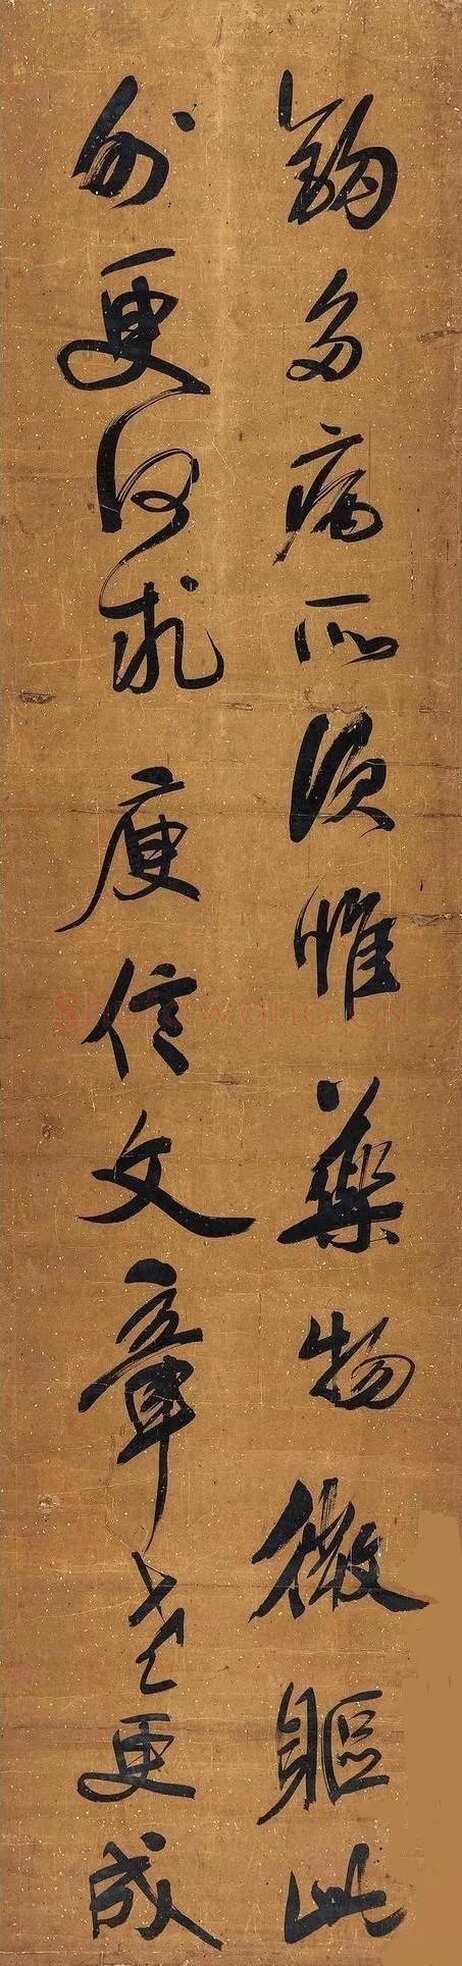 鉤多病所須惟藥物微軀此
外更何求庾信文章老更成